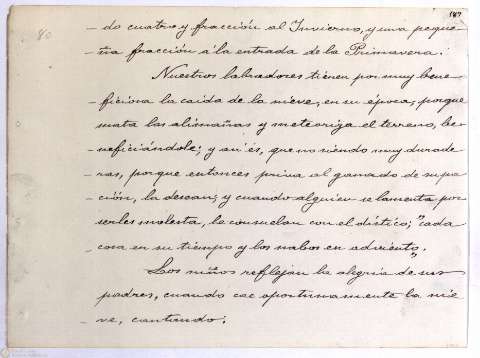 187
80
do cuatro y fracción al Invierno, y una peque-
-ña fracción á la entrada de la Primavera.
Nuestros labradores tienen por muy bene-
-ficiosa la caida de la nieve, en su época, porque
mata las alimañas y meteoriza el terreno, be-
-neficiándole; y así es, que no siendo muy durade-
-ras, porque entonces priva al ganado de su pa-
-ción, la desean; y cuando alguien se lamenta por
serles molesta, le consuelan con el dístico; "cada
cosa en su tiempo y los nabos en adviento."
Los niños reflejan la alegria de sus
padres, cuando cae oportunamente la nie-
-ve, cantando: